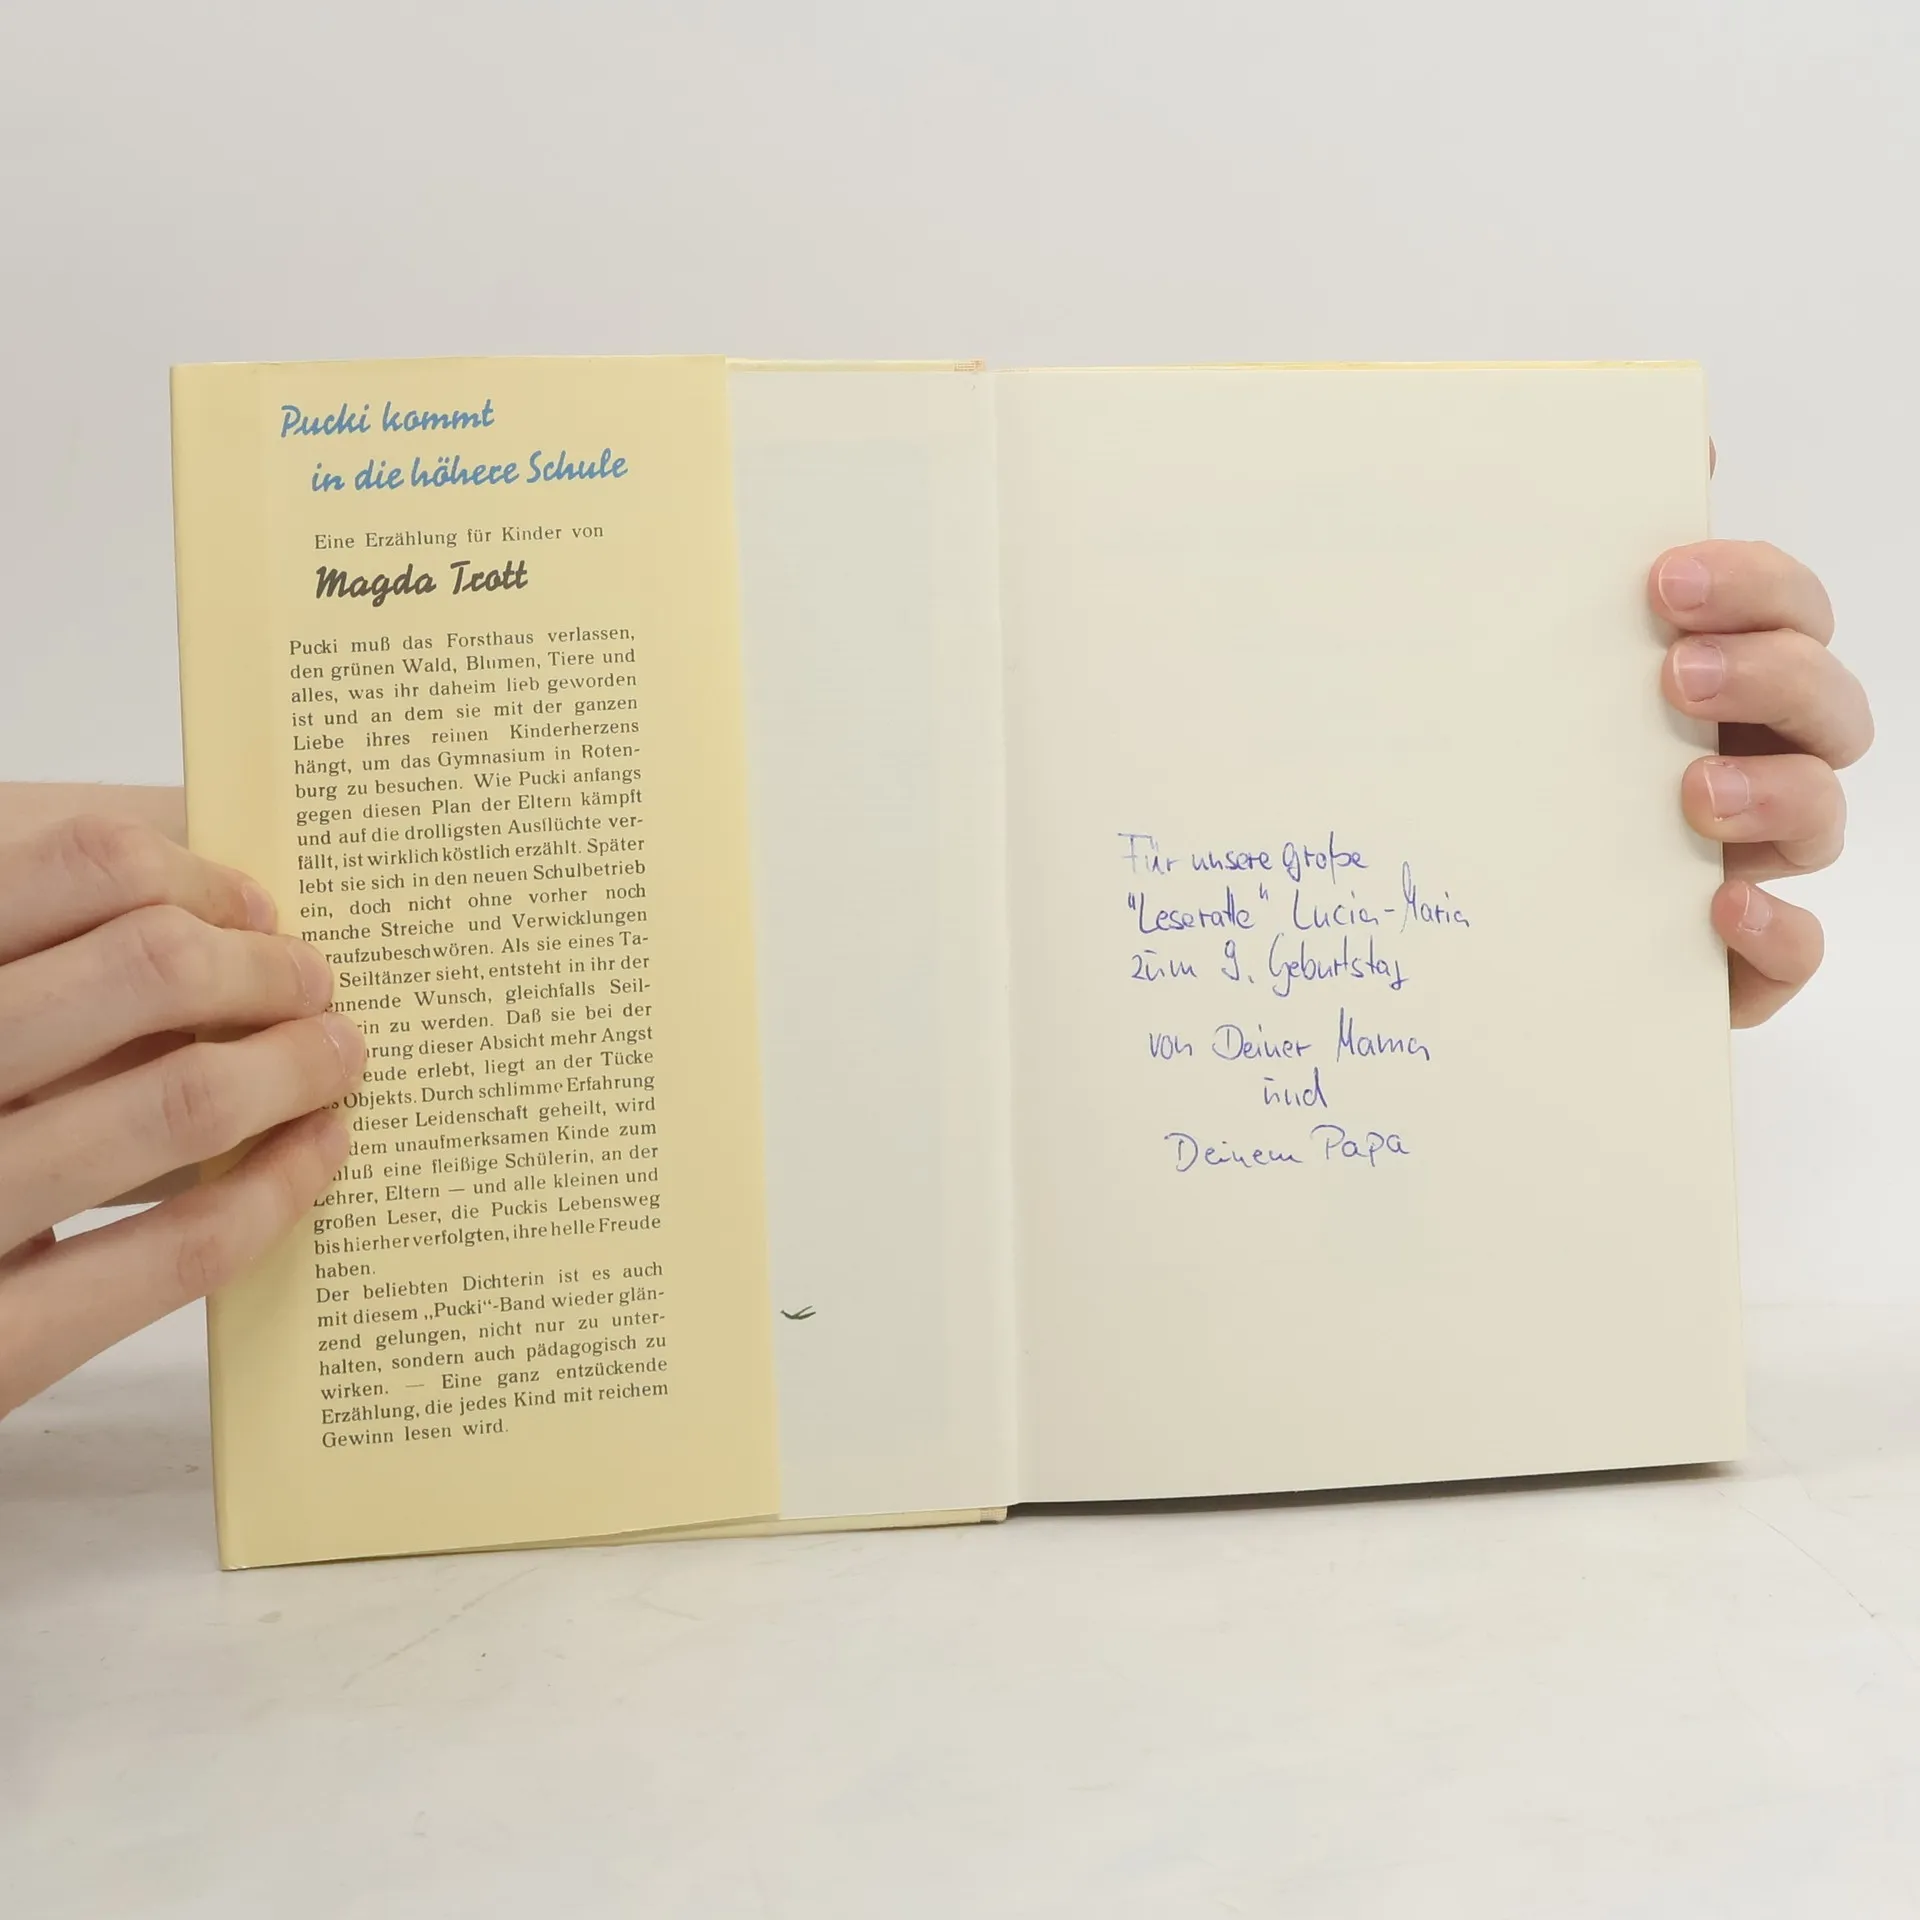 Pucki kommt
in die höhere Schule
Eine Erzählung für Kinder von
Magda Trott
Pucki muß das Forsthaus verlassen,
den grünen Wald, Blumen, Tiere und
alles, was ihr daheim lieb geworden
ist und an dem sie mit der ganzen
Liebe ihres reinen Kinderherzens
hängt, um das Gymnasium in Roten-
burg zu besuchen. Wie Pucki anfangs
gegen diesen Plan der Eltern kämpft
und auf die drolligsten Ausflüchte ver-
fällt, ist wirklich köstlich erzählt. Später
lebt sie sich in den neuen Schulbetrieb
ein, doch nicht ohne vorher noch
manche Streiche und Verwicklungen
raufzubeschwören. Als sie eines Ta-
Seiltänzer sieht, entsteht in ihr der
ennende Wunsch, gleichfalls Seil-
rin zu werden. Daß sie bei der
hrung dieser Absicht mehr Angst
eude erlebt, liegt an der Tücke
es Objekts. Durch schlimme Erfahrung
dieser Leidenschaft geheilt, wird
dem unaufmerksamen Kinde zum
hluß eine fleißige Schülerin, an der
Lehrer, Eltern — und alle kleinen und
großen Leser, die Puckis Lebensweg
bis hierher verfolgten, ihre helle Freude
haben.
Der beliebten Dichterin ist es auch
mit diesem „Pucki“-Band wieder glän-
zend gelungen, nicht nur zu unter-
halten, sondern auch pädagogisch zu
wirken. — Eine ganz entzückende
Erzählung, die jedes Kind mit reichem
Gewinn lesen wird.
Für unsere große
"Leseratte" Lucia-Maria
zum 9. Geburtstag
von Deiner Mama
und
Deinem Papa